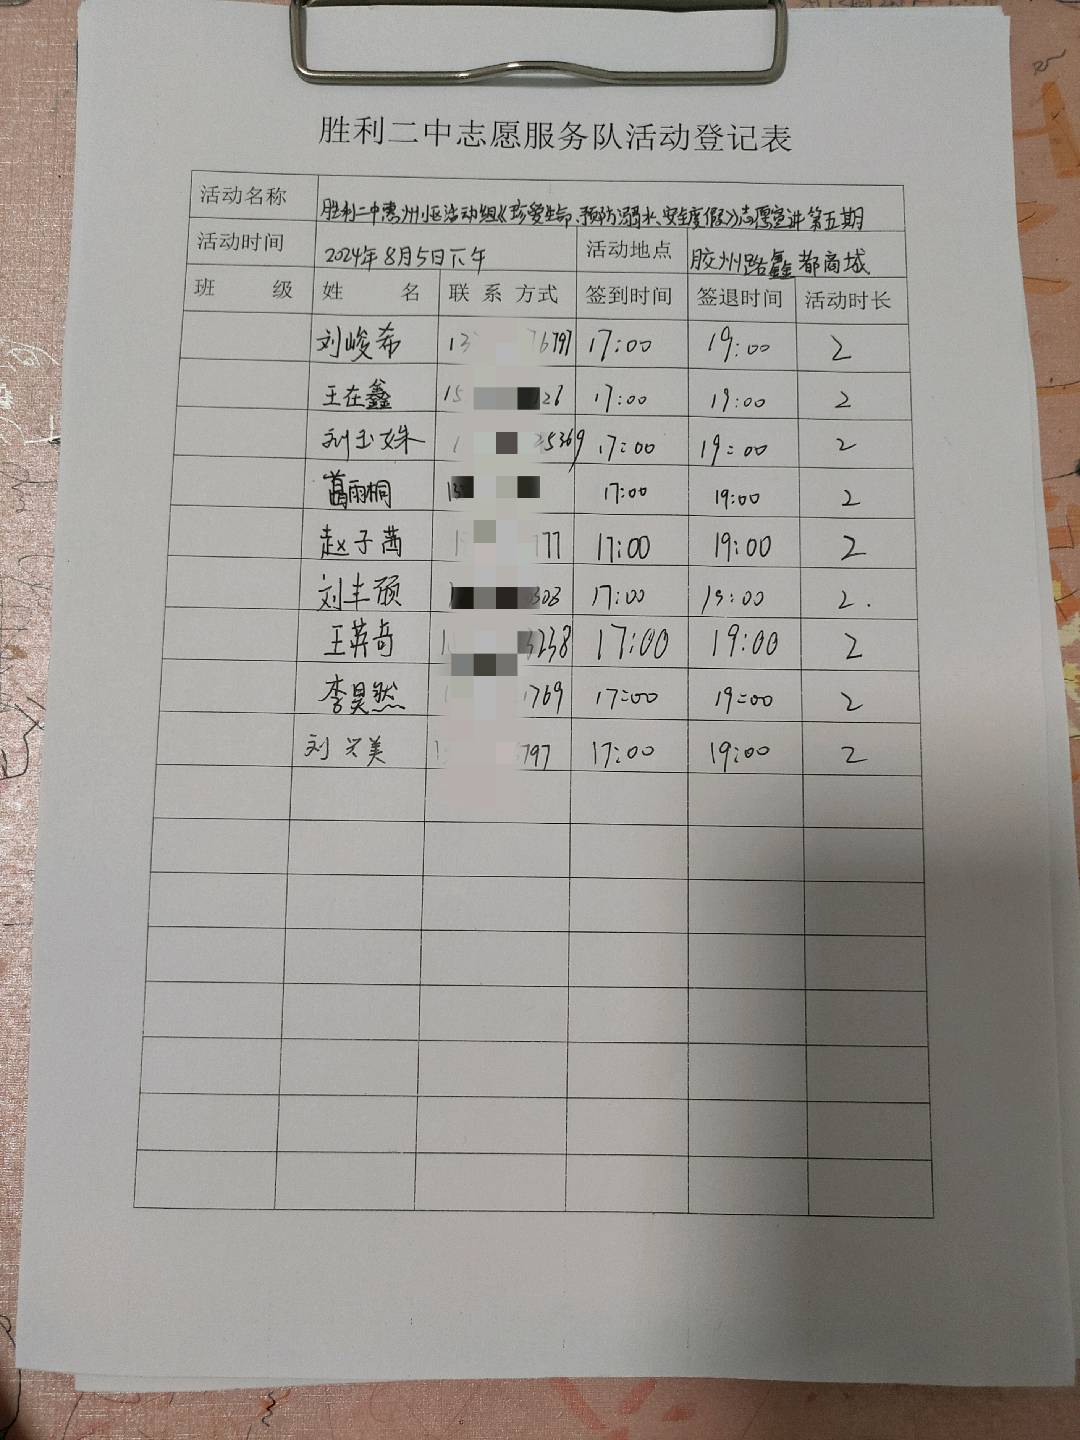 胜利二中志愿服务队活动登记表
活动名称 胜利二中惠州小区活动组《珍爱生命、预防溺水、安全度假》志愿宣讲第五期
活动时间 2024年8月5日下午 活动地点 胶州路鑫都商城
班 级 姓 名 联系方式 签到时间 签退时间 活动时长
刘峻希 13 76797 17:00 19:00 2
王在鑫 15 26 17:00 19:00 2
刘玉姝 1 5369 17:00 19:00 2
葛雨桐 13 17:00 19:00 2
赵子茜 1 777 17:00 19:00 2
刘丰硕 1 303 17:00 19:00 2.
王英奇 1 3238 17:00 19:00 2
李昊然 1769 17:00 19:00 2
刘兴美 1 797 17:00 19:00 2